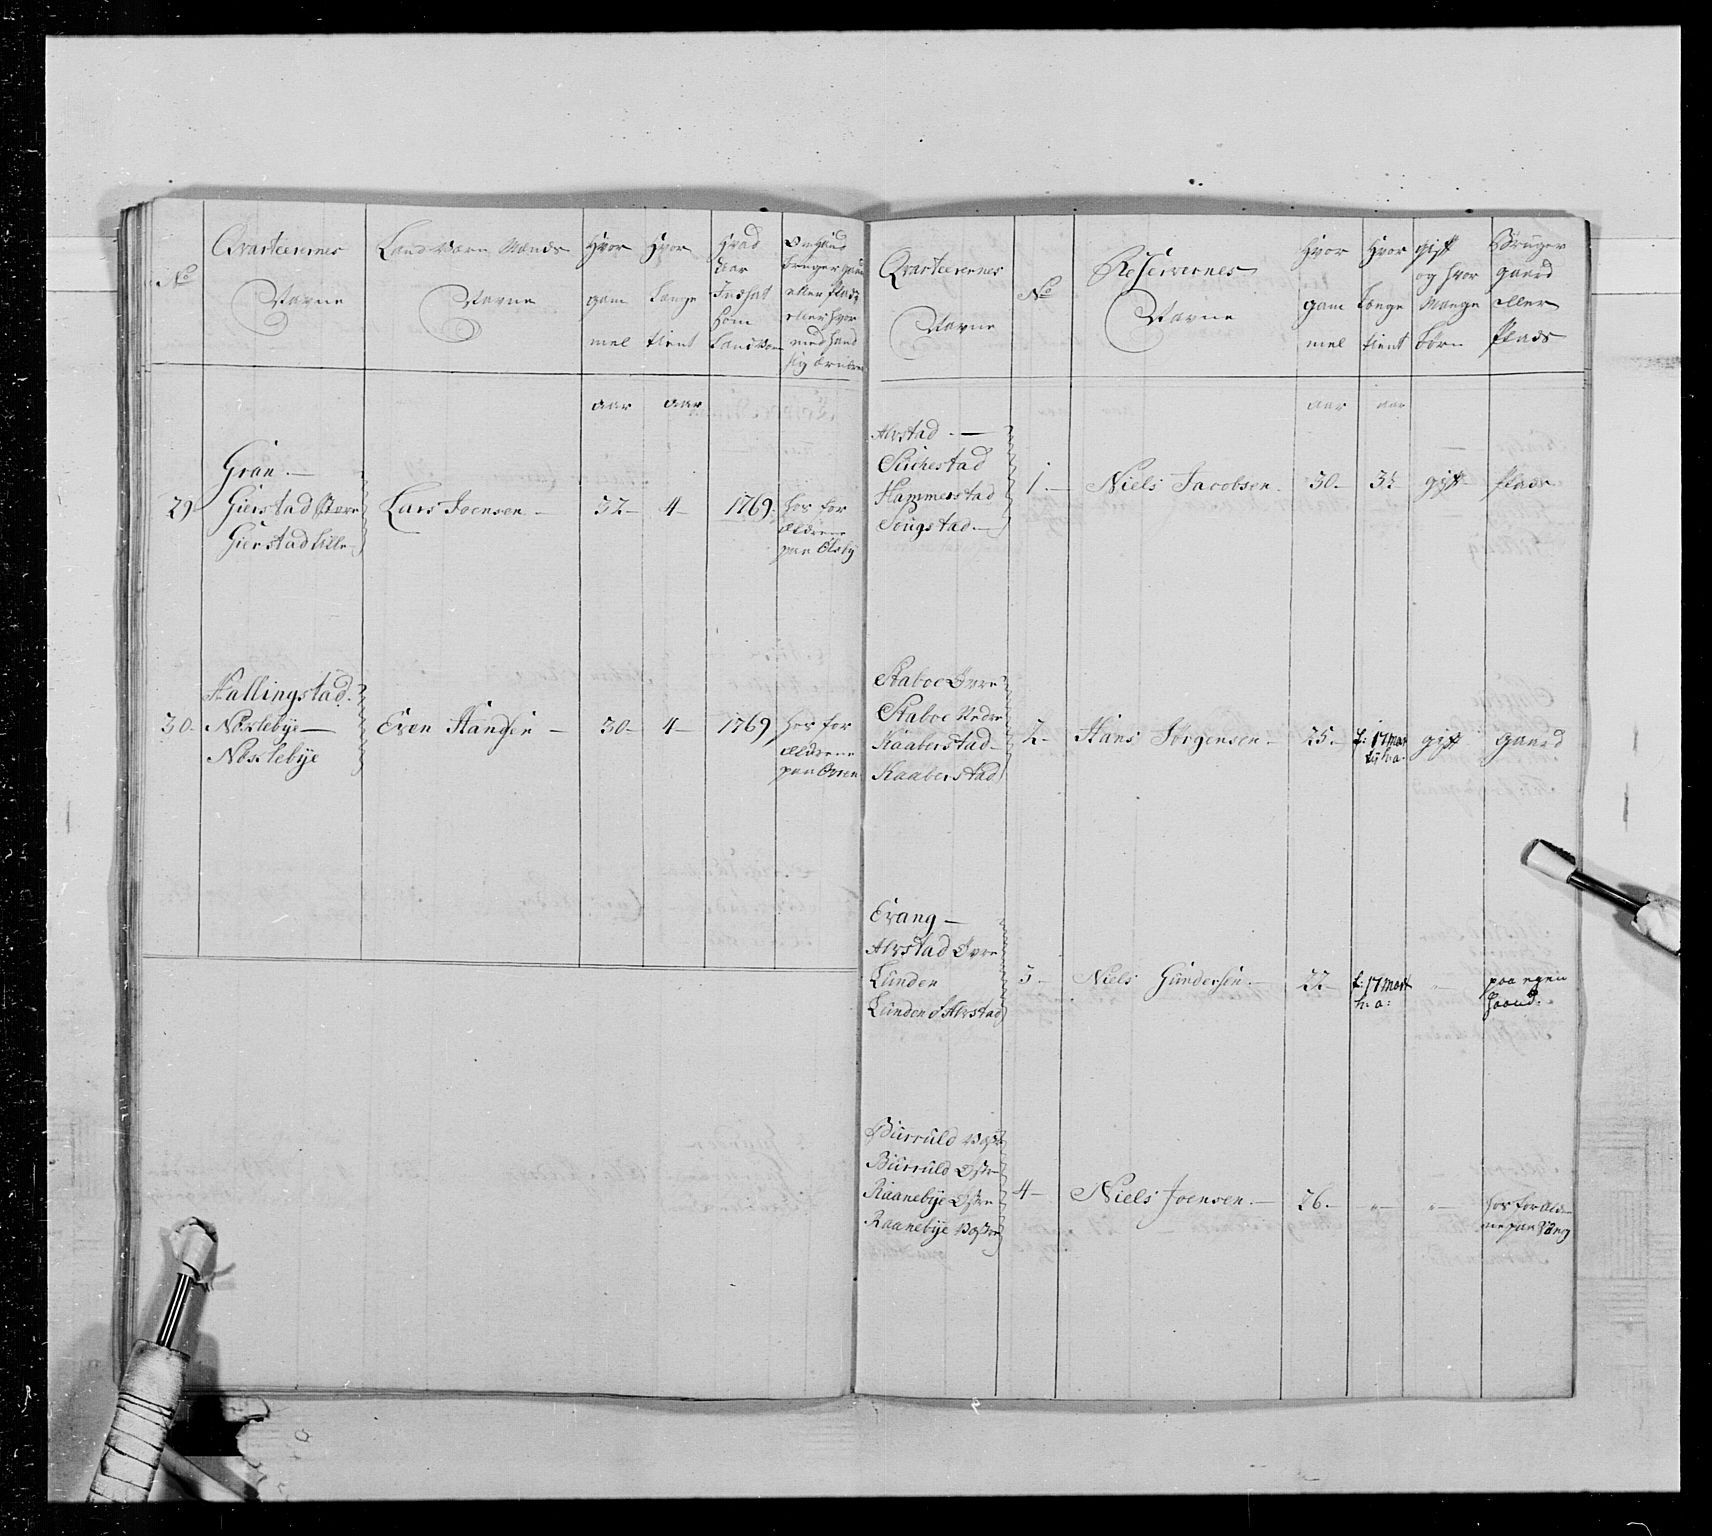 No
Qvarteerernes
Navne
Land Værn Mænds
Navne
Hvor
gam
mel
Hvor
længe
tient
Hvad
Aar
Indsat
som
Land Værn
Om hand
bruger gaard
eller Plads
eller hvor
med hand
sig ernærer
aar
aar
Gran. —
29
Gierstad Store
Gierstad Lille
Lars Joensen —
32 —
4 —
1769.
hos for
ældrene
paa Olsby
Hallingstad.
30.
Nøslebye —
Nøslebye
Even Hansen —
30 —
4 —
1769
hos for
ældrene
paa Øvren
Qvarteerernes
Navne
No
Reservernes
Navne
Hvor
gam
mel
Hvor
længe
tient
gift
og hvor
Mange
børn
Bruger
gaard
eller
Plads
aar
aar
Alvstad. —
Sückestad
Hammerstad
Sougstad. —
1. —
Niels Jacobsen.
30. —
3½
gift
Plads
Staboe Øvre
Staboe Nedre
Kaaberstad —
Kaaberstad
2 —
Hans Jørgensen. —
25. —
d: 17 Mart
gift
gaard
Evang —
Alvstad Øvre
Lunden
Lunden og Alvstad
3 —
Niels Gundersen. —
22 —
d: 17 Mart
h: a:
„ —
paa egen
haand.
Burruld Vestre
Burruld Østre
Raanebye Østre
Raanebye Vestre
4 —
Niels Joensen. —
26. —
„ —
„ —
hos for ældre
ne paa Vang